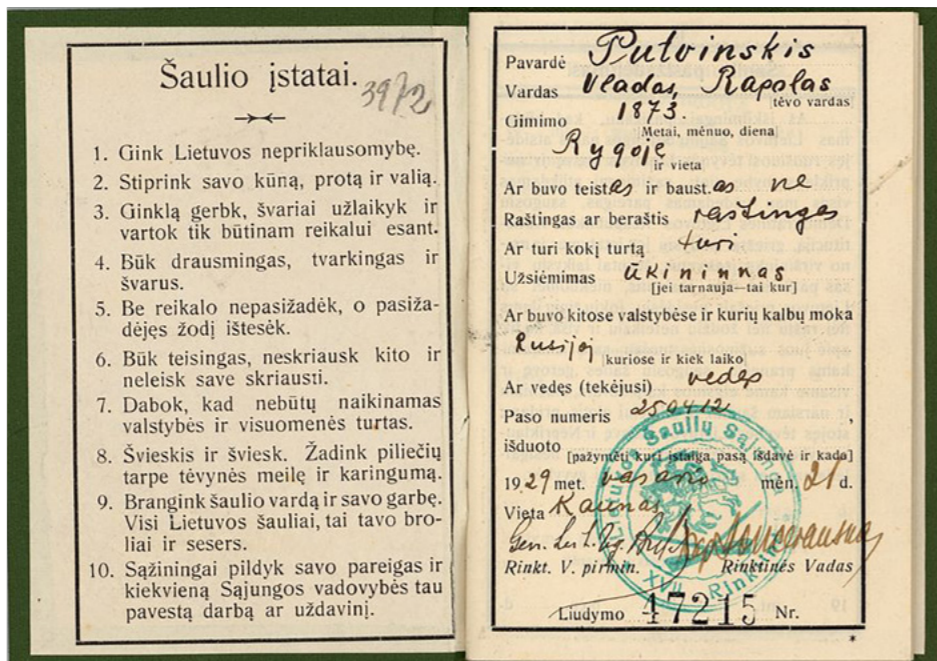 Šaulio įstatai.
3972
1. Gink Lietuvos nepriklausomybę.
2. Stiprink savo kūną, protą ir valią.
3. Ginklą gerbk, švariai užlaikyk ir
vartok tik būtinam reikalui esant.
4. Būk drausmingas, tvarkingas ir
švarus.
5. Be reikalo nepasižadėk, o pasiža-
dėjęs žodį ištesėk.
6. Būk teisingas, neskriausk kito ir
neleisk save skriausti.
7. Dabok, kad nebūtų naikinamas
valstybės ir visuomenės turtas.
8. Švieskis ir šviesk. Žadink piliečių
tarpe tėvynės meilę ir karingumą.
9. Brangink šaulio vardą ir savo garbę.
Visi Lietuvos šauliai, tai tavo bro-
liai ir sesers.
10. Sąžiningai pildyk savo pareigas ir
kiekvieną Sąjungos vadovybės tau
pavestą darbą ar uždavinį.
Pavardė Putvinskis
Vardas Vladas, Rapolas
tėvo vardas
Gimimo 1873.
Metai, mėnuo, diena
Rygoje
ir vieta
Ar buvo teistas ir baust.as ne
Raštingas ar beraštis raštingas
Ar turi kokį turtą turi
Užsiėmimas ūkininnas
[jei tarnauja—tai kur]
Ar buvo kitose valstybėse ir kurių kalbų moka
Rusijoj
kuriose ir kiek laiko
Ar vedęs (tekėjusi) vedęs
Paso numeris 250412,
išduoto [pažymėti kuri įstaiga pasą išdavė ir kada]
1929 met. vasario mėn. 21 d.
Vieta Kaunas
Gen. Lei t.
Rinkt. V. pirmin. Rinktinės Vadas
Šaulių Sąjunga
XVII Rinkt
Liudymo 47215 Nr.